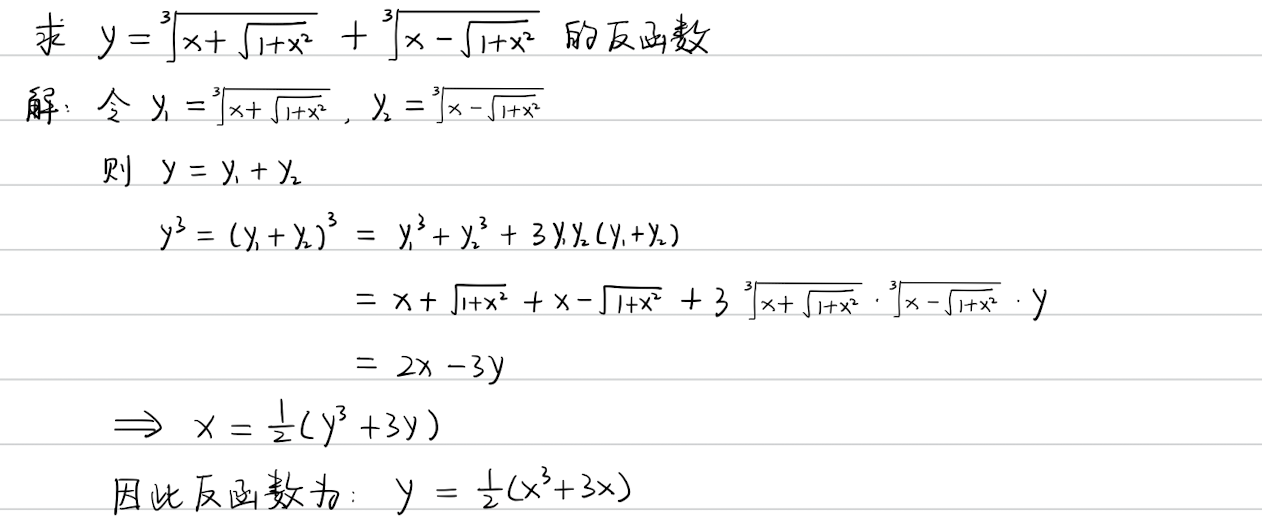 求 y = ∛(x+√(1+x²)) + ∛(x-√(1+x²)) 的反函数
解: 令 y₁ = ∛(x+√(1+x²)), y₂ = ∛(x-√(1+x²))
则 y = y₁ + y₂
y³ = (y₁+y₂)³ = y₁³ + y₂³ + 3y₁y₂(y₁+y₂)
= x+√(1+x²) + x-√(1+x²) + 3 ∛(x+√(1+x²)) · ∛(x-√(1+x²)) · y
= 2x - 3y
⟹ x = ½(y³+3y)
因此反函数为: y = ½(x³+3x)